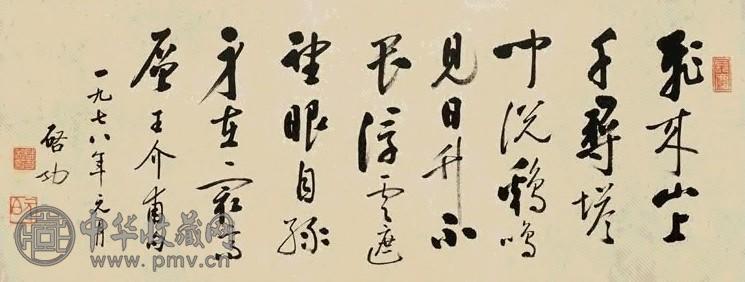 飛来山上
千尋塔
聞説鷄鳴
見日升不
畏浮雲遮
望眼自緣
身在最高
層 王介甫句
一九七八年元月
啓功
中华收藏网
www.pmv.cn